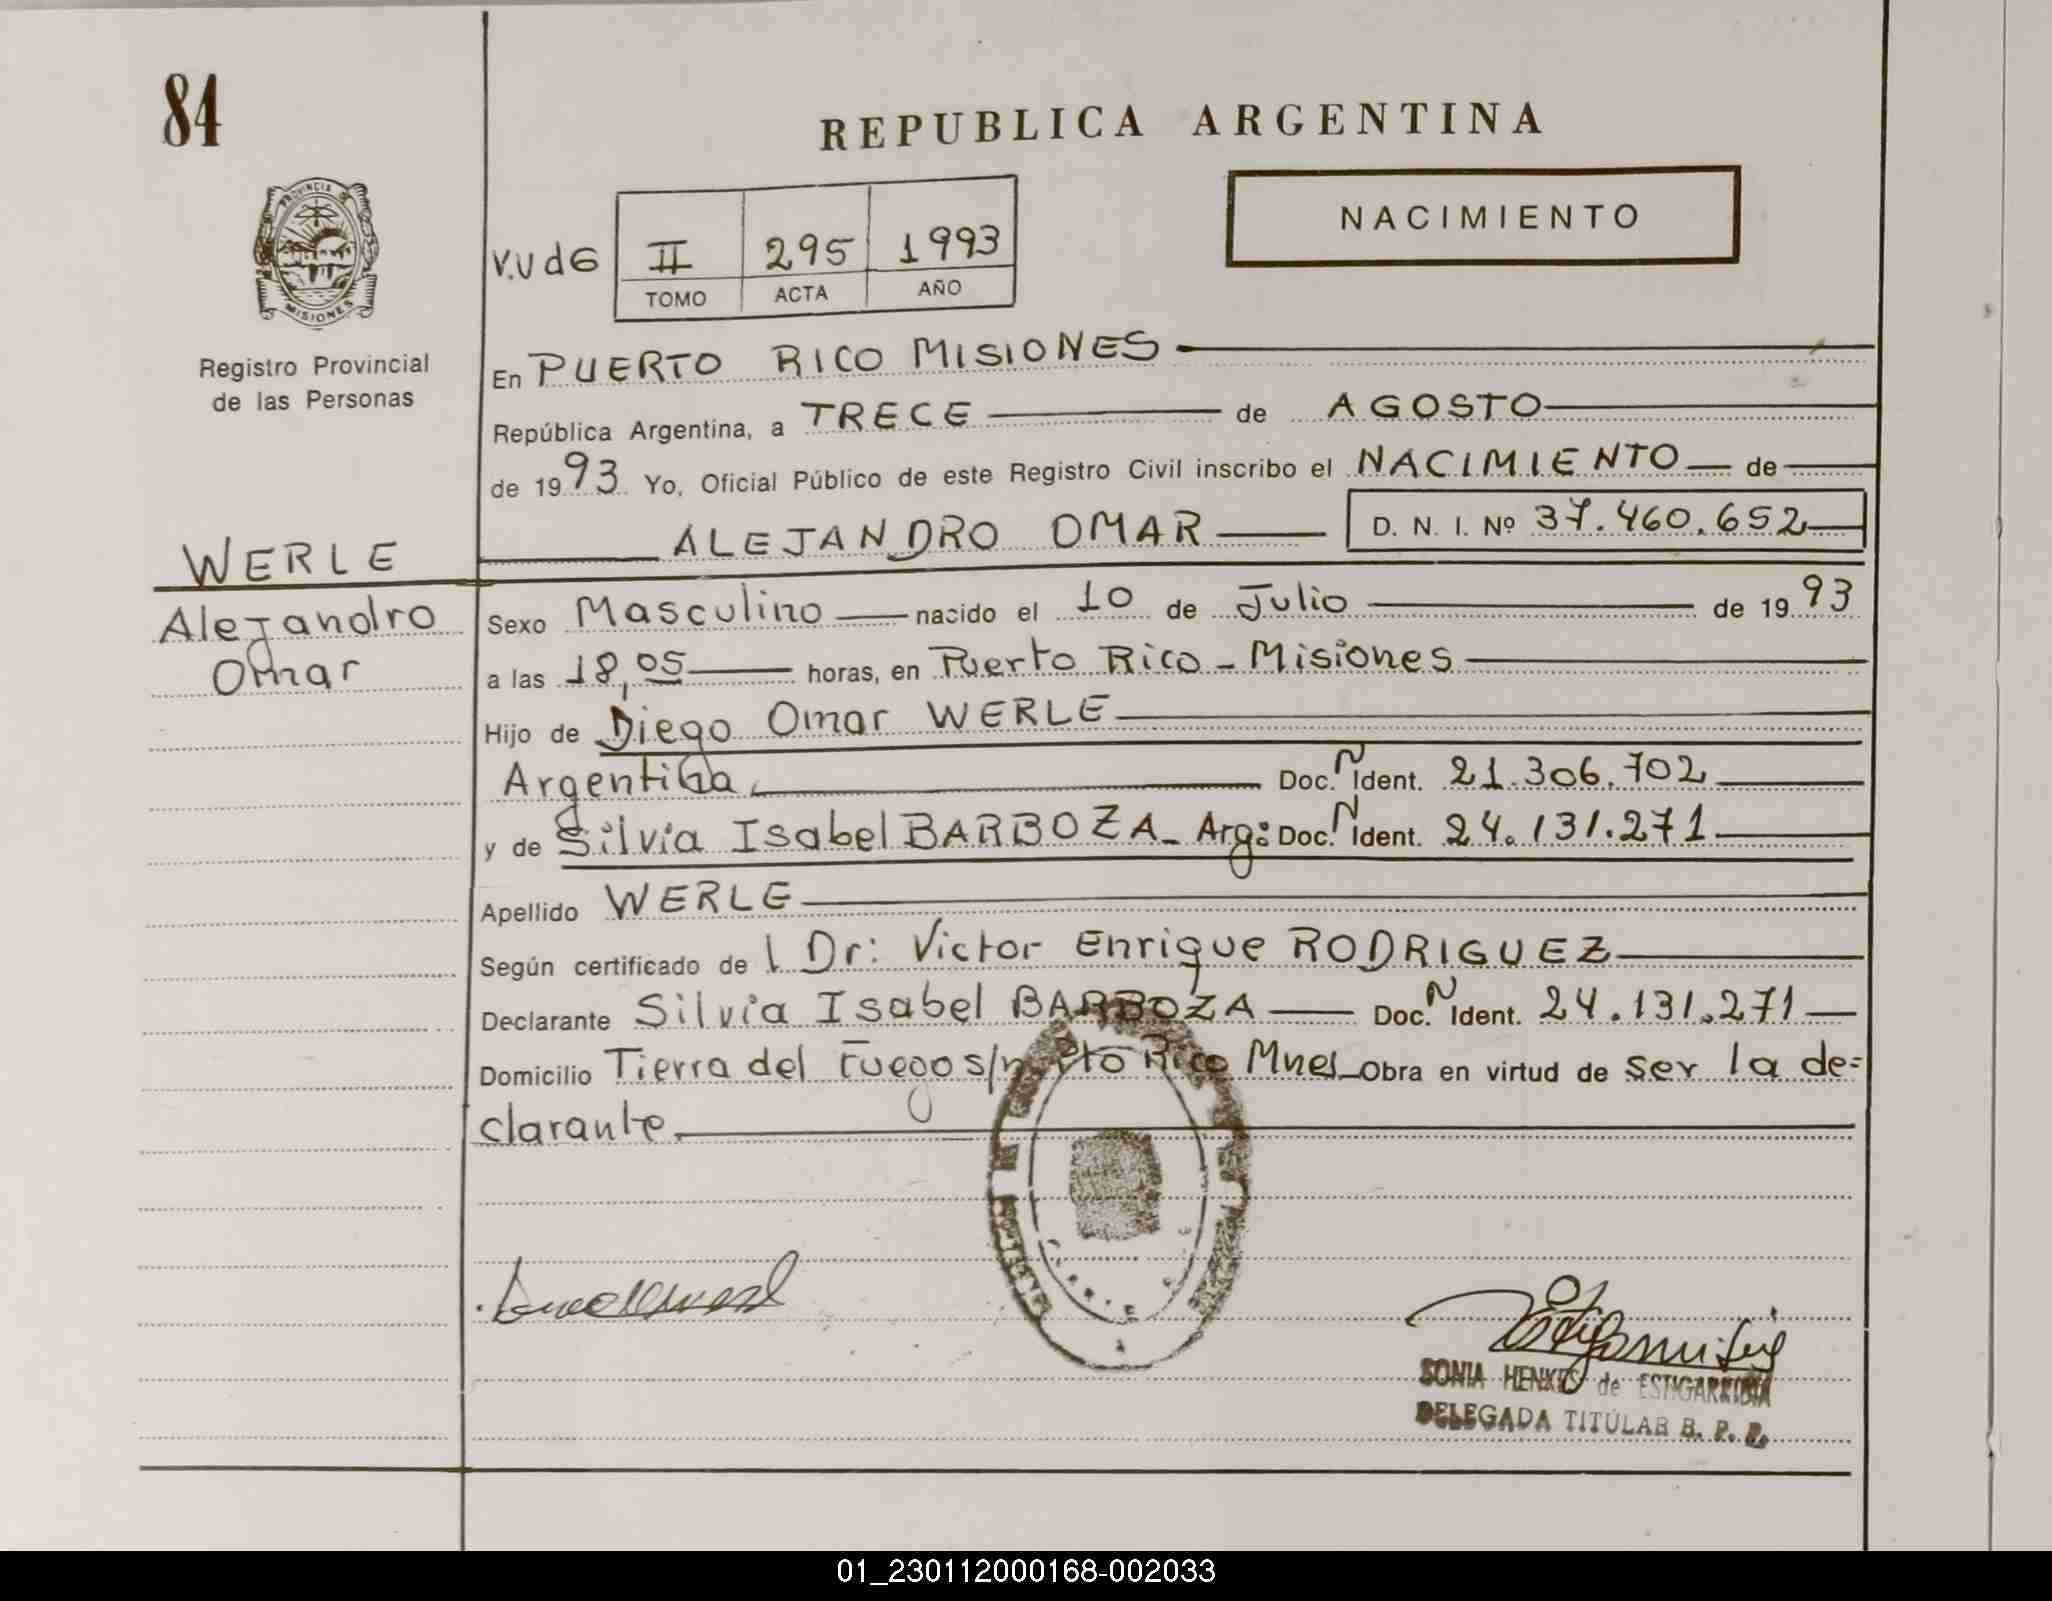 84
REPUBLICA ARGENTINA
PROVINCIA DE
MISIONES
NACIMIENTO
V.U d6 II 295 1993
TOMO ACTA AÑO
Registro Provincial
de las Personas
En PUERTO RICO MISIONES
República Argentina, a TRECE de AGOSTO
de 1993 Yo, Oficial Público de este Registro Civil inscribo el NACIMIENTO de
ALEJANDRO OMAR D. N. I. Nº 37.460.652
WERLE
Alejandro
Omar
Sexo Masculino nacido el 10 de Julio de 1993
a las 18,05 horas, en Puerto Rico - Misiones
Hijo de Diego Omar WERLE
Argentina Doc. N Ident. 21.306.702
y de Silvia Isabel BARBOZA - Arg: Doc. N Ident. 24.131.271
Apellido WERLE
Según certificado de l Dr: Victor Enrique RODRIGUEZ
Declarante Silvia Isabel BARBOZA Doc. N Ident. 24.131.271
Domicilio Tierra del Fuego s/n Pto Rico Mnes Obra en virtud de ser la de=
clarante
SONIA HENKES de ESTIGARRIBIA
DELEGADA TITULAR B. P. P.
01_230112000168-002033